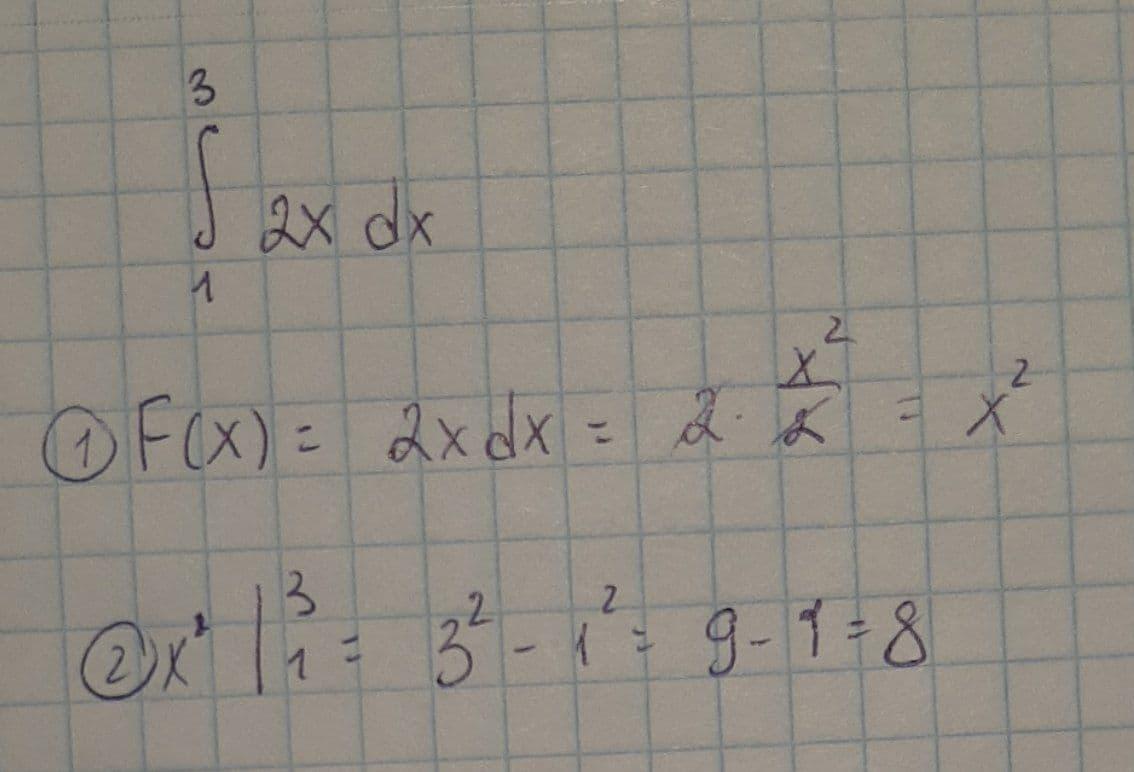 3
∫ 2x dx
1
① F(x) = 2x dx = 2 · x²/2 = x²
② x² |³₁ = 3² - 1² = 9 - 1 = 8